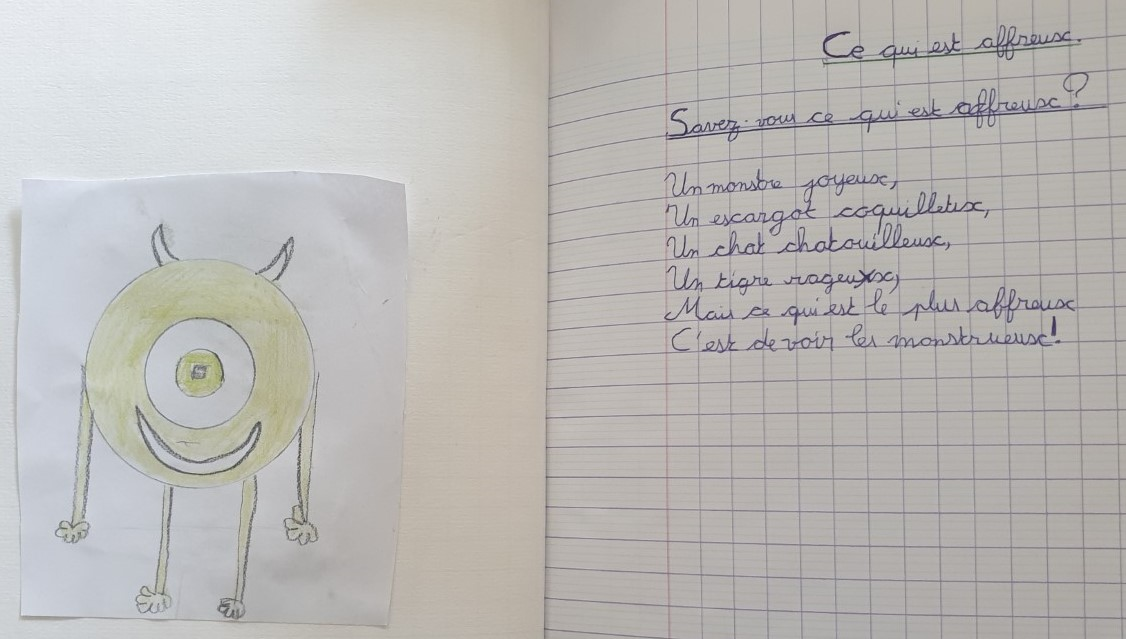 Ce qui est affreux.
Savez-vous ce qui est affreux?
Un monstre joyeux,
Un escargot coquilleux,
Un chat chatouilleux,
Un tigre rageux,
Mais ce qui est le plus affreux
C'est de voir les monstrueux!